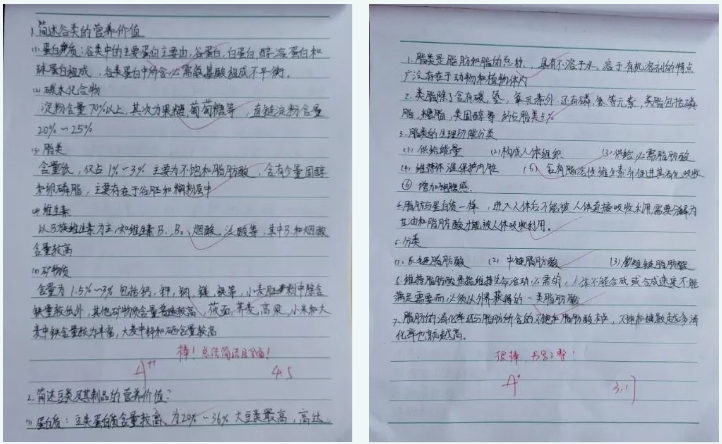 1.简述谷类的营养价值
(1)蛋白质:谷类中的主要蛋白主要由,谷蛋白,白蛋白,醇溶蛋白和
球蛋白组成,谷类蛋白中所含必需氨基酸组成不平衡。
(2)碳水化合物
淀粉含量70%以上,其次为果糖,葡萄糖等,直链淀粉含量
20%~25%
(3)脂类
含量低,仅占1%~3% 主要为不饱和脂肪酸,含有少量固醇
和卵磷脂,主要存在于谷胚和糊粉层中
(4)维生素
以B族维生素为主,如维生素B₁、B₂、烟酸、泛酸等,其中B和烟酸
含量较高
(5)矿物质
含量为1.5%~3% 包括钙,钾,钠,镁,铁等,小麦胚
铁量较,其他矿物质含量 较高,莜面,荞麦,高粱,小米和大
麦中铁含量较为丰富,大麦中锌和硒含量较高
棒!总结简洁且全面!
A⁺⁺
4.5
2.简述豆类及其制品的营养价值?
(1)蛋白质:豆类蛋白质含量较高,为20%~36% 大豆最高,高达
1.脂类是脂肪和脂的总称,具有不溶于水,溶于有机溶剂的特点
广泛存在于动物和植物体内
2.类脂除了含有碳、氢、氧元素外,还有磷、氮等元素,类脂包括磷
脂,糖脂,类固醇等,约占脂类5%
3.脂类的生理功能分类
(1)供给能量 (2)构成人体组织 (3)供给必需脂肪酸
(4)维持体温保护内脏 (5)含有脂溶性维生素并促进其吸收
⑥增加饱腹感
4.脂肪与蛋白质一样,进入人体后不能被人体直接吸收利用需要分解为
甘油和脂肪酸才能被人体吸收利用。
5.分类
(1)长链脂肪酸 (2)中链脂肪酸 (3)短链脂肪酸
6.必需脂肪酸是指维持生命活动必需的,人体不能合成或合成速度不能
满足需要而必须从外界获得的一类脂肪酸
7.脂肪的消化率还与脂肪所含的不饱和脂肪酸有关,不饱和键数越多消
化率也就越高。
很棒
A⁺
3.17